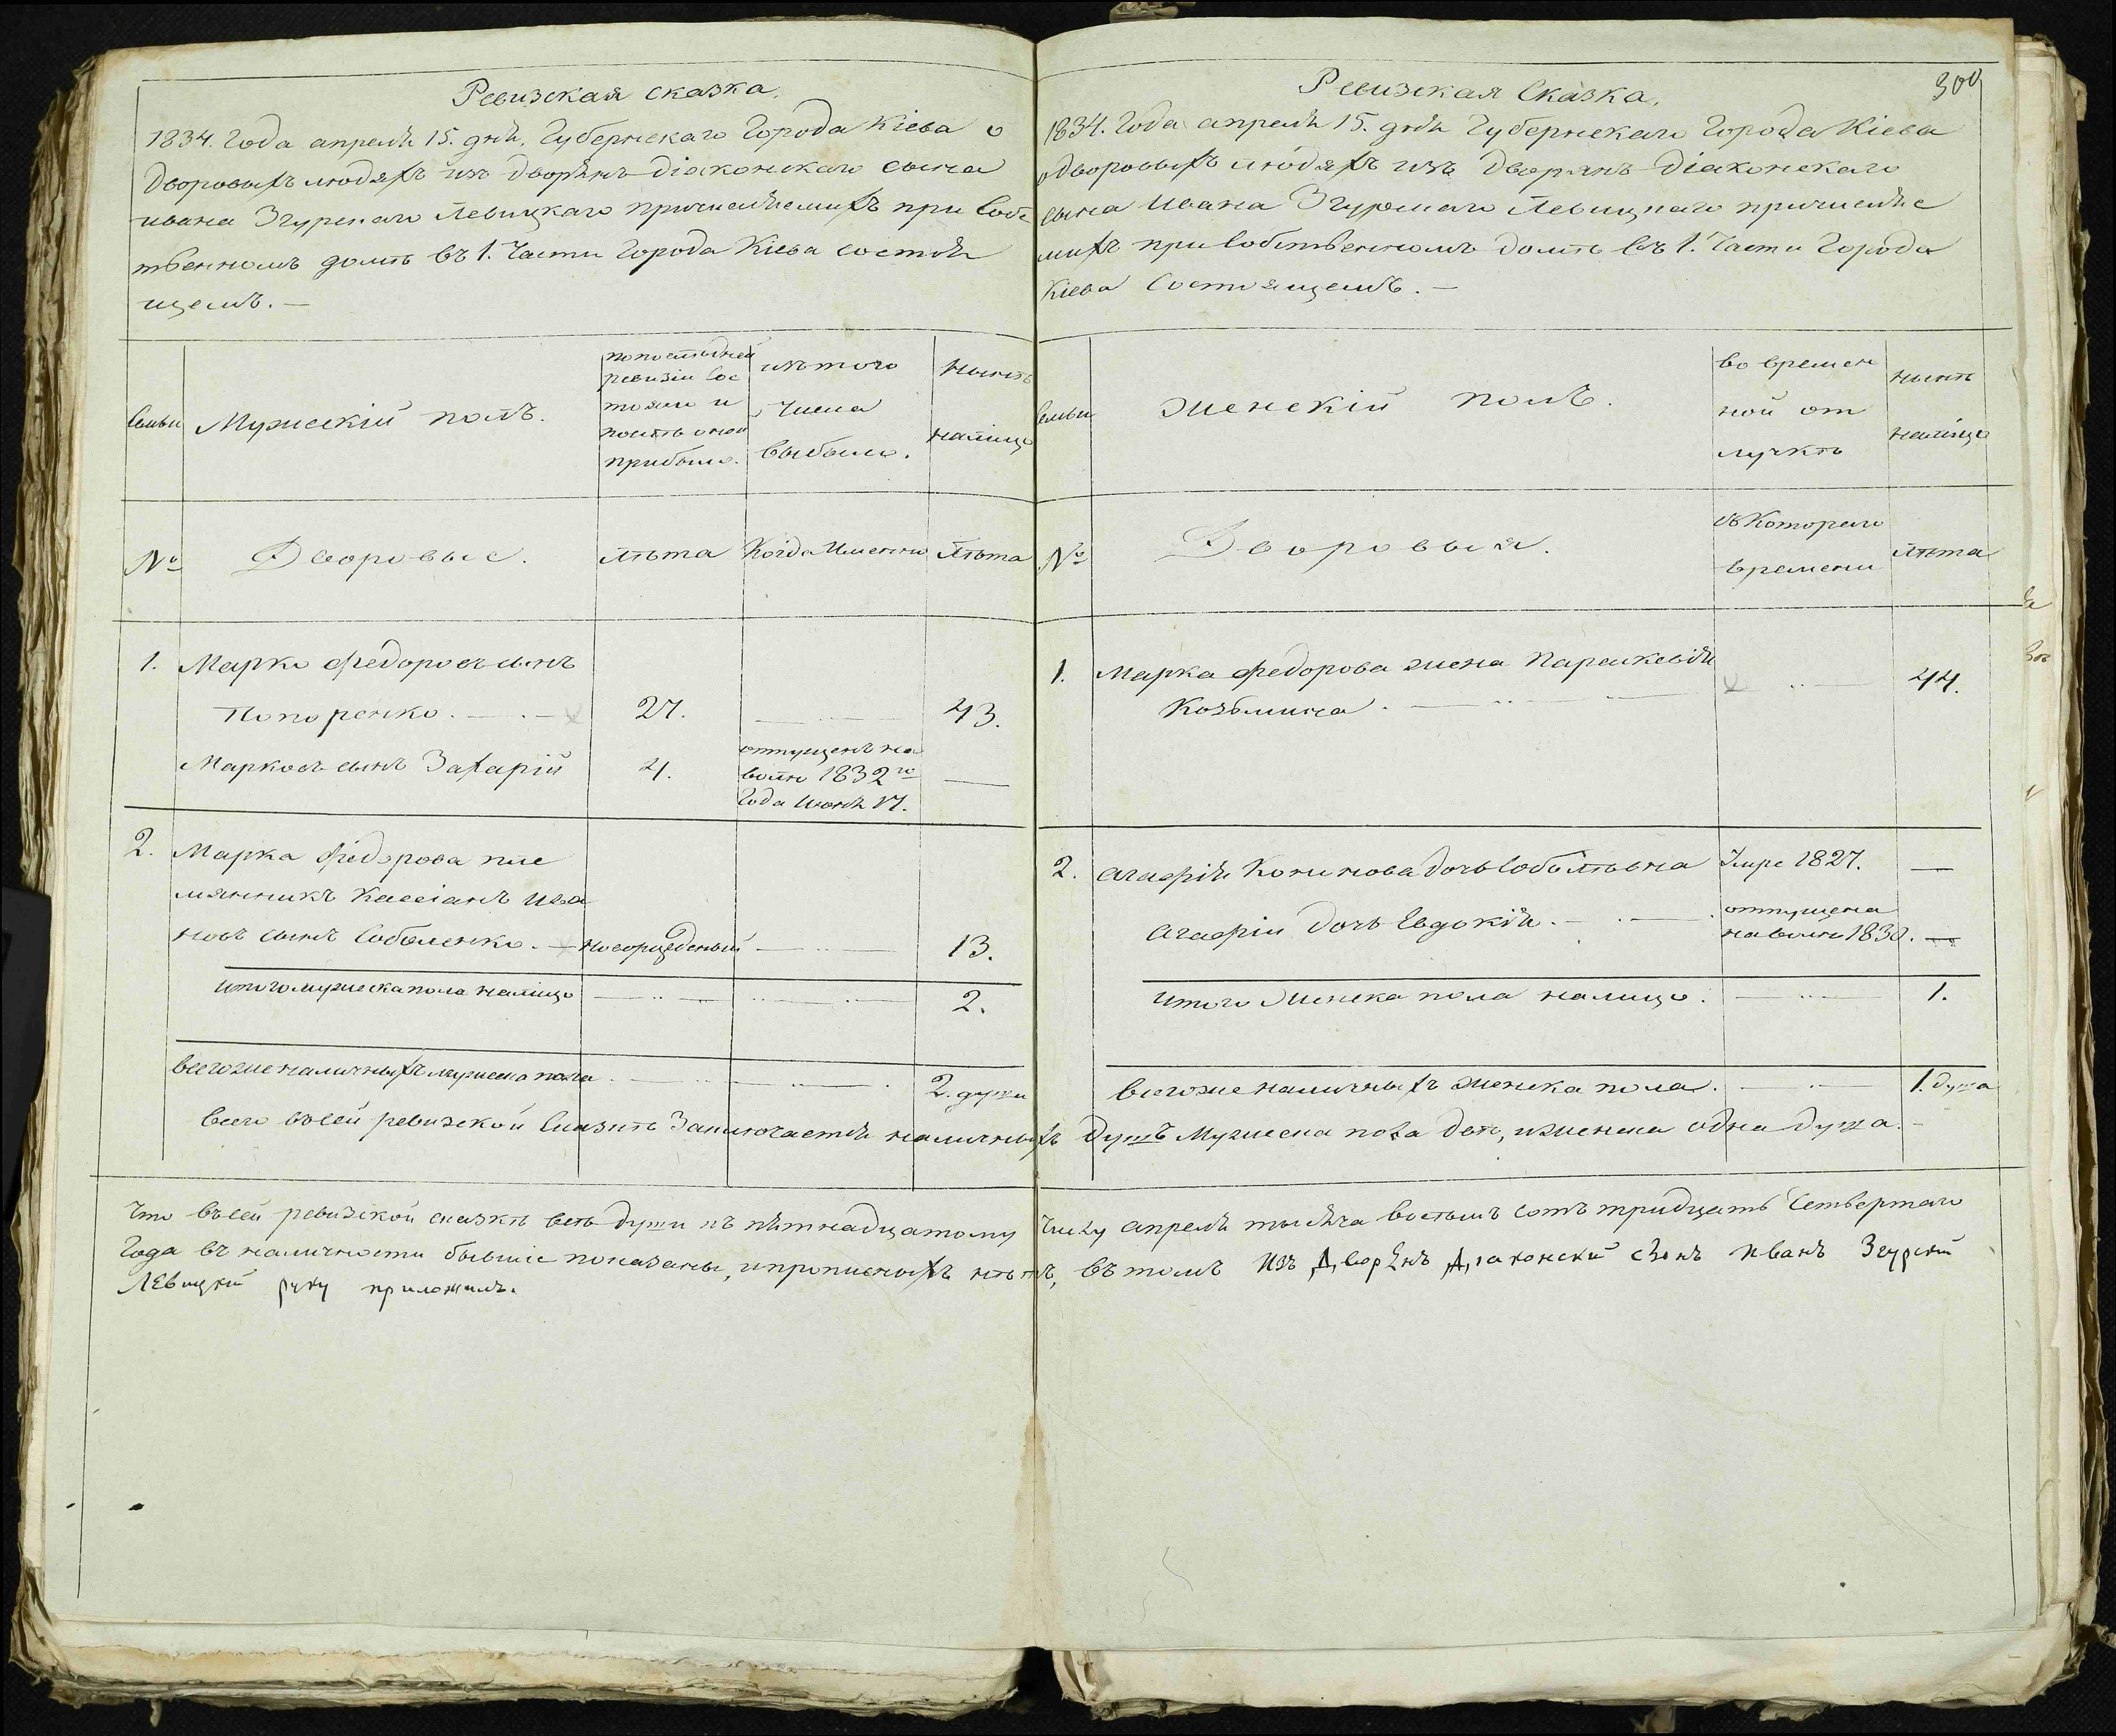 Ревизская сказка.
1834. Года апреля 15. дня, Губернскаго Города Кіева о
Дворовыхъ людяхъ изъ дворянъ Діаконскаго сына
Ивана Згурскаго Левицкаго причисляемыхъ при собс
твенномъ домѣ въ 1. Части Города Кіева состоя
щемъ. —
Семьи
Мужескій полъ.
по последней
ревизіи сос
тояли и
послѣ оной
прибыло.
изъ того
числа
выбыло.
Нынѣ
налицо
№
Дворовые.
лѣта
Когда Именно
Лѣта
1. Марко Федоровъ сынъ
Попоренко. 27. 43.
Марковъ сынъ Захарій 4.
отпущенъ на
волю 1832го
Года Июня 17.
2. Марка Федорова пле
мянникъ Кассіанъ Ива
новъ сынъ Соболенко. — новорожденый 13.
Итого мужеска пола налицо 2.
Всего же наличныхъ мужеска пола. 2. души
Ревизская Сказка.
309
1834. Года апреля 15. дня Губернскаго Города Кіева
о Дворовыхъ людяхъ изъ Дворянъ Діаконскаго
сына Ивана Згурскаго Левицкаго причисляе
мыхъ при Собственномъ домѣ въ 1. Части Города
Кіева Состоящемъ. —
Семьи
Женскій полъ.
во времен
ной от
лучкѣ
нынѣ
налицо
№
Дворовыя.
съ Котораго
времени
лѣта
1. Марка Федорова жена Параскевія
Козьмина. 44.
2. Агафія Кононова дочь Умре 1827. —
Агафіи дочь Евдокія.
отпущена
на волю 1830. —
Итого Женска пола налицо. 1.
Всего же наличныхъ женска пола. 1. душа
Всего въ сей ревизской Сказкѣ Заключается наличныхъ душъ Мужеска пола две, и женска одна душа. —
Что въ сей ревизской сказкѣ все души къ пятнадцатому Числу апреля тысяча восемь сотъ тридцать Четвертаго
Года въ наличности бывшіе показаны, и прописныхъ нѣтъ, въ томъ Изъ Дворянъ Діаконский сынъ Иванъ Згурский
Левицкий руку приложилъ.